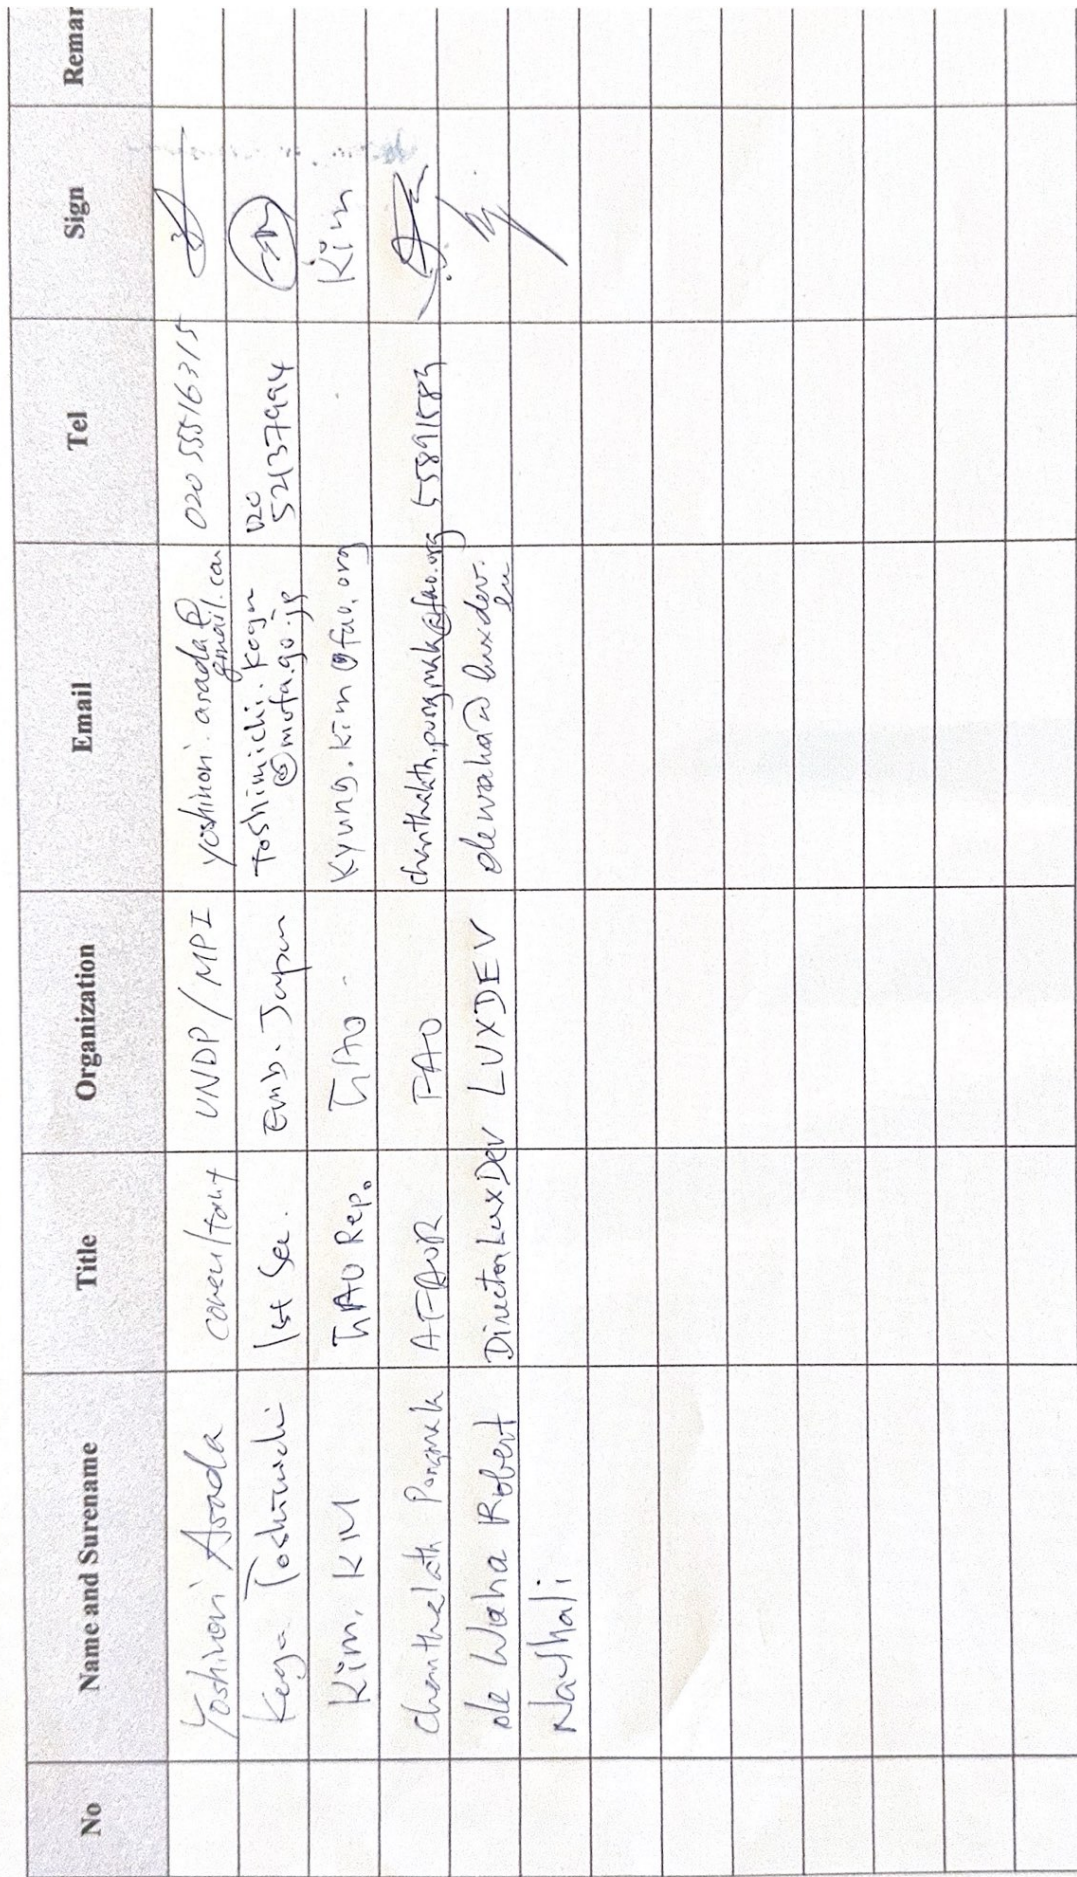 No Name and Surename Title Organization Email Tel Sign Remar
Yoshinori Asada consultant UNDP/MPI yoshinori.asada@ 020 55516315
gmail.com
Toshimichi 1st Sec. Emb. Japan toshimichi. 020
@mofa.go.jp 52137994
Kim, KIM FAO Rep. FAO Kyung.Kim@fao.org Kim
Chanthalath Pongmala AFAOR FAO
de Waha Robert Director LuxDev LUXDEV dewaha@luxdev.
lu
Nathali